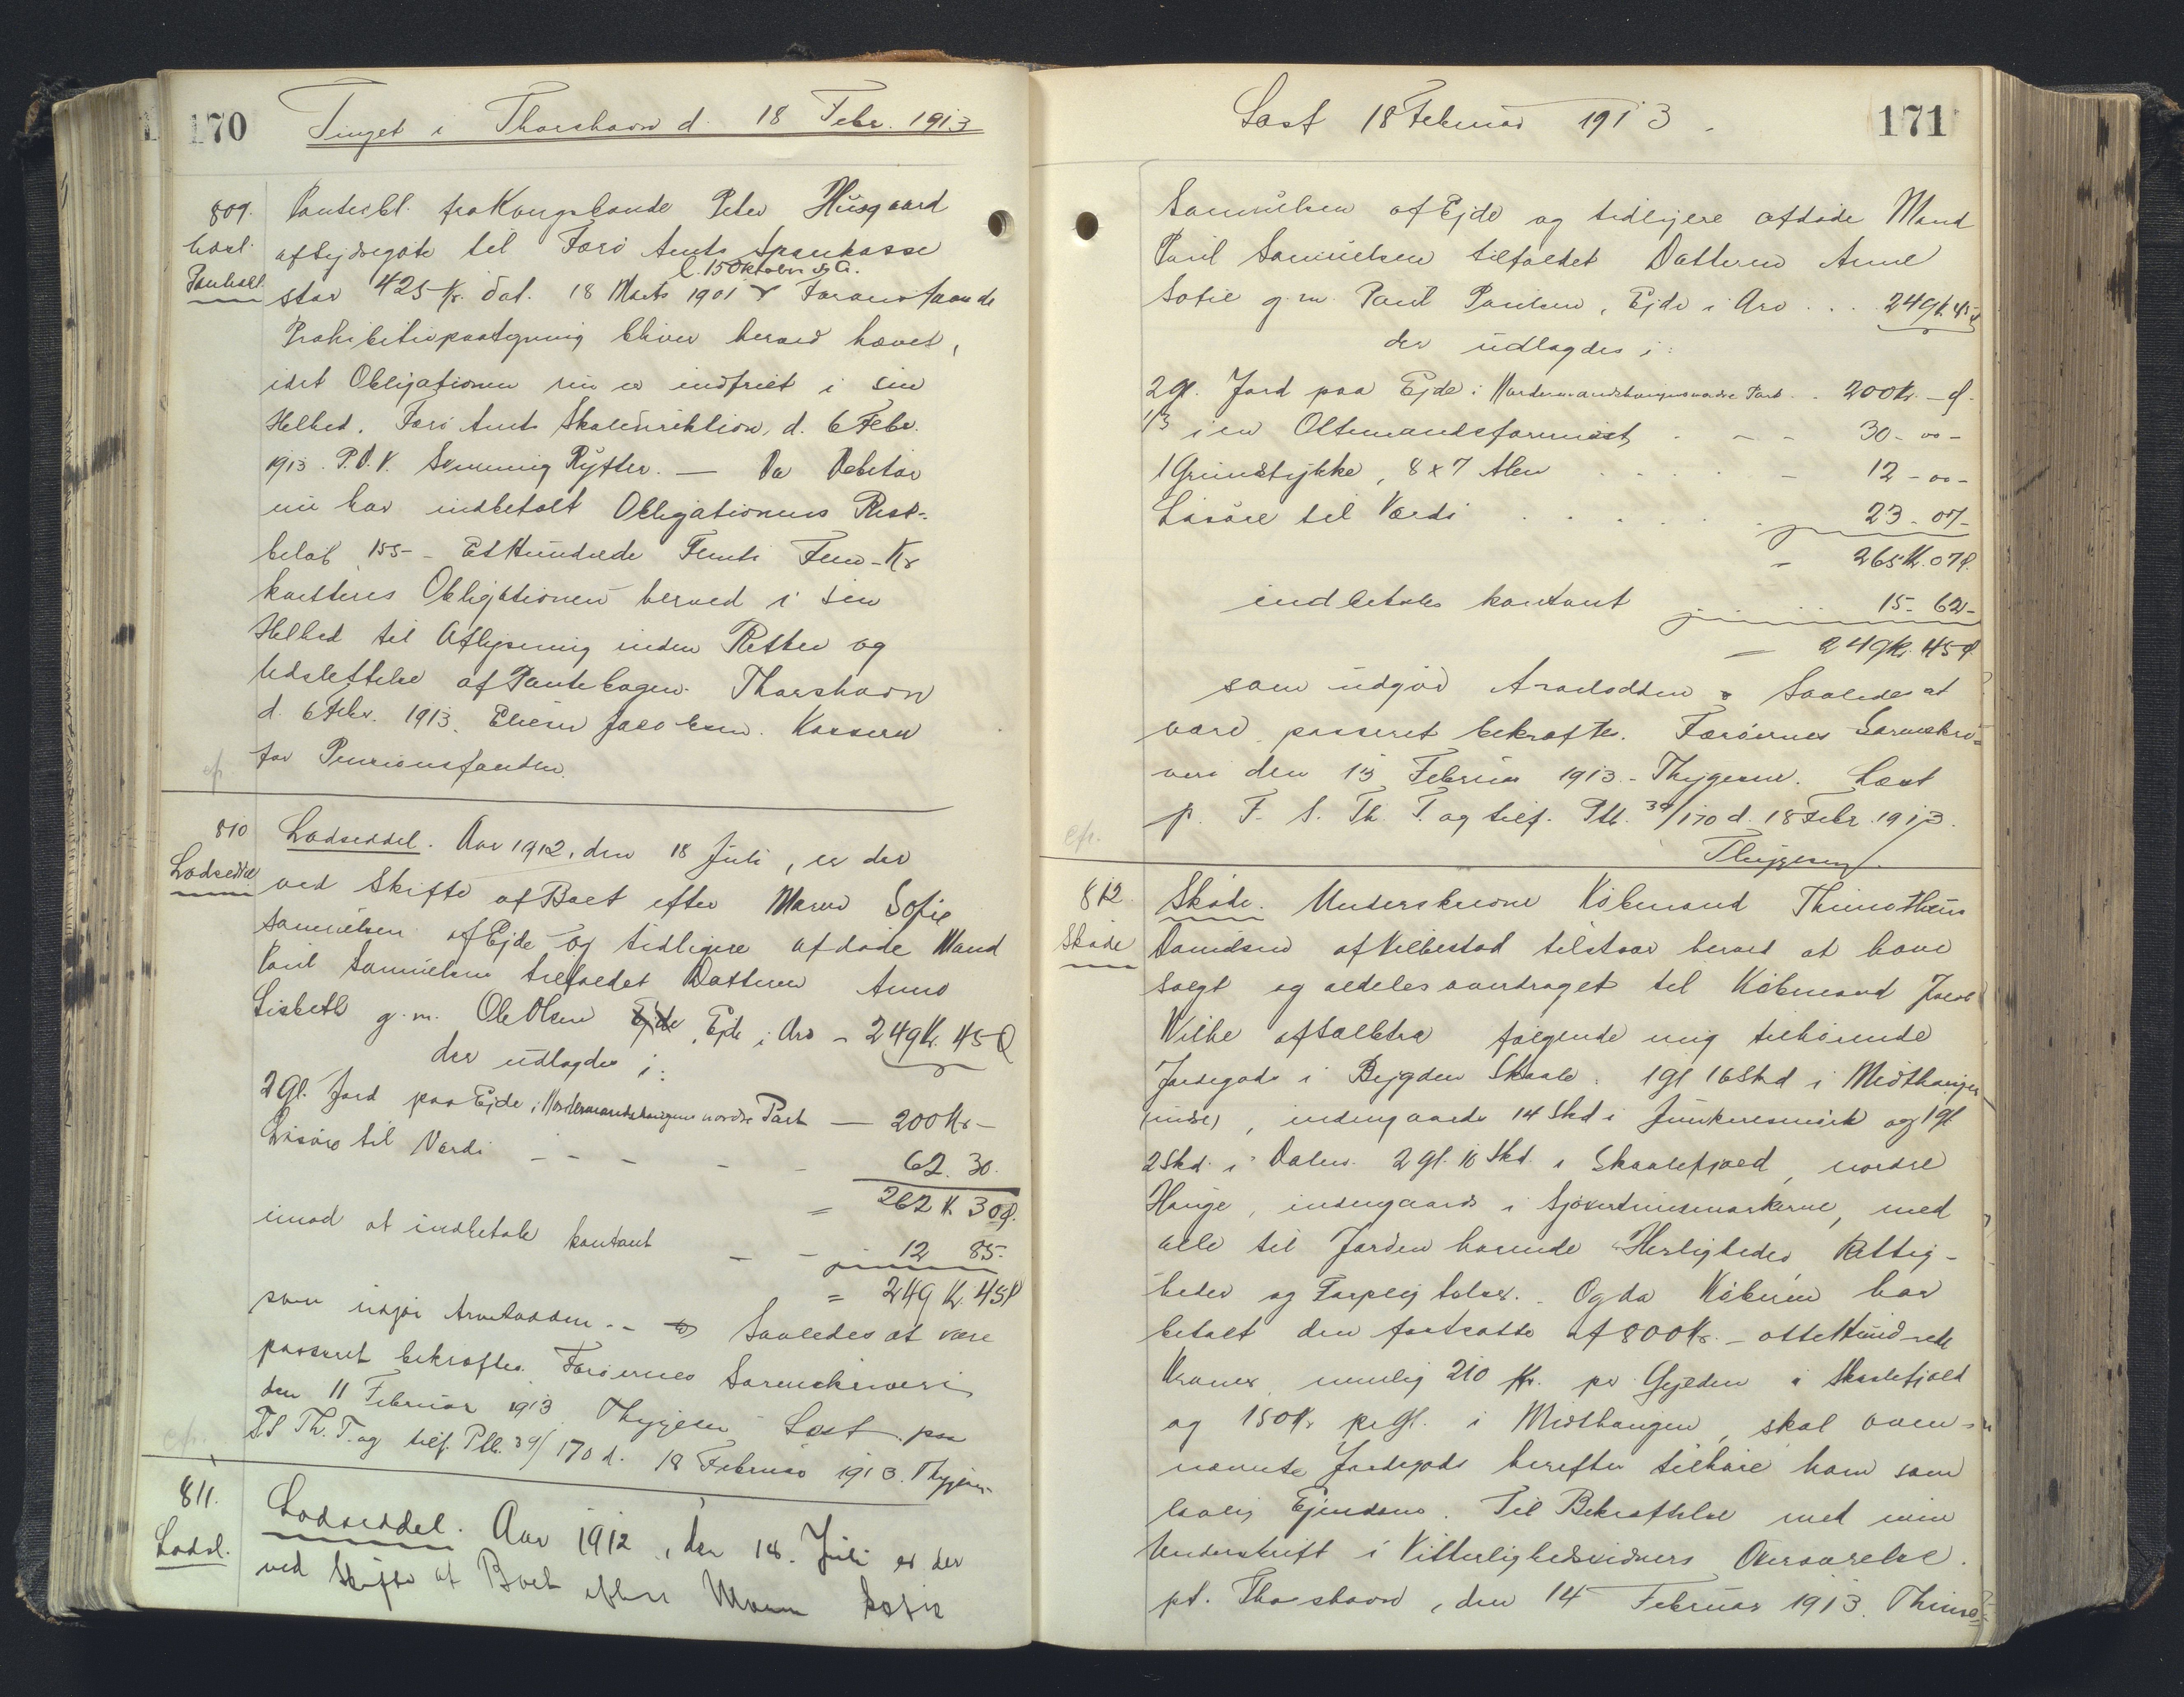 170
Tinget i Thorshavn d. 18 Febr. 1913
809.
Pantobl.
Pantobl. fra Kongsbonde Peter Húsgaard
af Ejdregøte til Færø Amts Sparekasse
l. 15 Oktober s. A.
stor 425 Kr. dat. 18 Marts 1901 Foranstaaende
Prohibitivpaategning bliver herved hævet,
idet Obligationen nu er indfriet i sin
Helhed. Færø Amts Skoledirektion, d. 6 Febr.
1913. P.D.V. Svenning Rytter. — Da Debitor
nu har indbetalt Obligationens Rest-
beløb 155 - Et Hundrede Femti Fem - Kr
kvitteres Obligationen herved i sin
Helhed til Aflysning inden Retten og
Udslettelse af Pantebogen. Thorshavn
d. 6 Febr. 1913. Elieser Jacobsen. Kasserer
for Pensionsfonden.
cfr.
810
Lodseddel
Lodseddel. Aar 1912, den 18 Juli, er der
ved Skifte af Boet efter Maren Sofie
Samuelsen af Ejde og tidligere afdøde Mand
Poul Samuelsen tilfaldet Datteren Anne
Lisbeth g. m. Ole Olsen Ejde, Ejde i Arv - 249 Kr. 45 Ø
der udlagdes i:
2 Gl. Jord paa Ejde i Nordermandshaugens nordre Part — 200 Kr -
Løsøre til Værdi - - - - - 62. 30.
= 262 Kr. 30 Ø.
imod at indbetale kontant - - 12 85.
= 249 Kr. 45 Ø
som udgør Arvelodden. - Saaledes at være
passeret bekræftes. Færøernes Sorenskriveri
den 11 Februar 1913. Thygesen Læst paa
F.S. Th. T. og tilf. Ptb. 39/170 d. 18 Februar 1913. Thygesen.
cfr.
811.
Lodsl.
Lodseddel. Aar 1912, den 18. Juli er der
ved Skifte af Boet efter Maren Sofie
Læst 18 Februar 1913.
171
Samuelsen af Ejde og tidligere afdøde Mand
Poul Samuelsen tilfaldet Datteren Anne
Sofie g. m. Poul Poulsen, Ejde i Arv . . . 249 Kr. 45 Ø
der udlagdes i:
2 Gl. Jord paa Ejde i Nordermandshaugens nordre Part . . 200 Kr. - Ø.
1/3 i en Oltemandsformúst . - - - 30 - 00 -
1 Grundstykke, 8 x 7 Alen . . . - 12 - 00 -
Løsøre til Værdi . . . . . 23 - 07 -
- 265 Kr. 07 Ø.
indbetales kontant 15 - 62 -
— 249 Kr. 45 Ø.
som udgør Arvelodden. Saaledes at
være passeret bekræftes. Færøernes Sorenskri=
veri den 13 Februar 1913. - Thygesen. Læst
p. F. S. Th. T. og tilf. Ptb. 39/170 d. 18 Febr. 1913.
Thygesen.
cfr.
812.
Skøde
Skøde. Underskrevne Købmand Thimotheus
Davidsen af Velbestad tilstaar herved at have
solgt og aldeles overdraget til Købmand Jacob
Vilhe af følgende mig tilhørende
Jordegods i Bygden Skaale: 1 Gl 16 Skd i Midthaugen
, indengaards 14 Skd i og 1 Gl.
2 Skd. i Dalen. 2 Gl. 10 Skd. i Skaalefjord, nordre
Hauge, indengaards i , med
alle til Jorden hørende Herligheder, Rettig-
heder og Forpligtelser. - Og da Køberen har
betalt den fortsatte af 800 Kr. - otte Hundrede
Kroner, nemlig 210 Kr. per Gylden i Skaalefjord
og 150 Kr pr. Gl. i Midthaugen, skal oven-
nævnte Jordegods herefter tilhøre ham som
lovlig Ejendom. Til Bekræftelse med min
Underskrift i Vitterlighedsvidners Overværelse.
pt. Thorshavn, den 14 Februar 1913. Thimo=